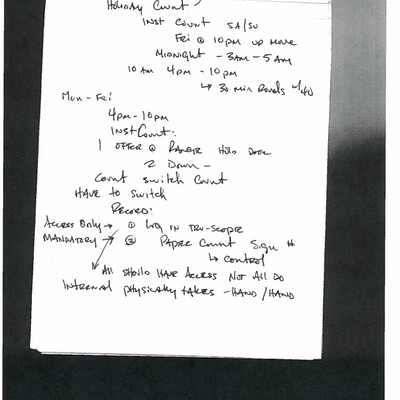 Holiday Count
Inst Count SA/SU
Fri @ 10pm up move
Midnight - 3am - 5am
10 am 4pm - 10pm
↳ 30 min Rounds w/
Mon - Fri
4pm - 10pm
Inst Count:
1 offer @
2 Down -
Count switch Count
Have to switch
Record:
Access Only → ① Log in Tru-Scope
Mandatory → ② Paper Count Sgn #
↳ Control
All should have access not all do
Internal physically takes - Hand/Hand